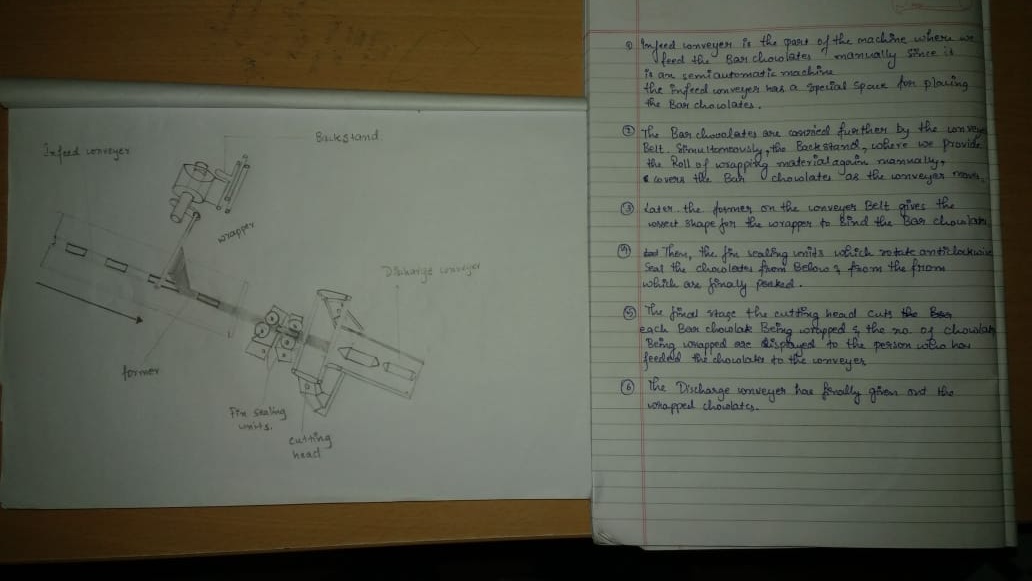 Infeed conveyer
Backstand
wrapper
Discharge conveyer
former
Fin sealing
units.
cutting
head
① Infeed conveyer is the part of the machine where we
feed the Bar chocolates manually since it
is an semiautomatic machine
the infeed conveyer has a special space for placing
the Bar chocolates.
② The Bar chocolates are carried further by the conveyer
Belt. Simultaneously, the Backstand, where we provide
the Roll of wrapping material again manually,
covers the Bar chocolates as the conveyer moves.
③ Later the former on the conveyer Belt gives the
correct shape for the wrapper to Bind the Bar chocolates
④ Then, the fin sealing units which rotate anticlockwise
Seal the chocolates from Below & from the
which are finaly packed.
⑤ The final stage the cutting head cuts the
each Bar chocolate Being wrapped & the no. of chocolates
Being wrapped are displayed to the person who has
feeded the chocolates to the conveyer
⑥ The Discharge conveyer has finally given out the
wrapped chocolates.